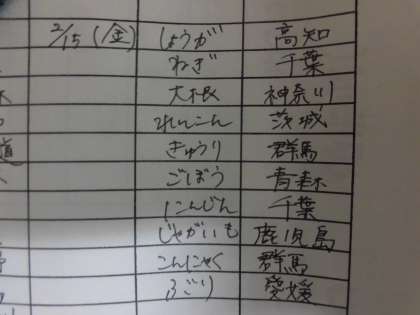 2/15(金) しょうが 高知
ねぎ 千葉
大根 神奈川
れんこん 茨城
きゅうり 群馬
道 ごぼう 青森
にんじん 千葉
じゃがいも 鹿児島
こんにゃく 群馬
愛媛